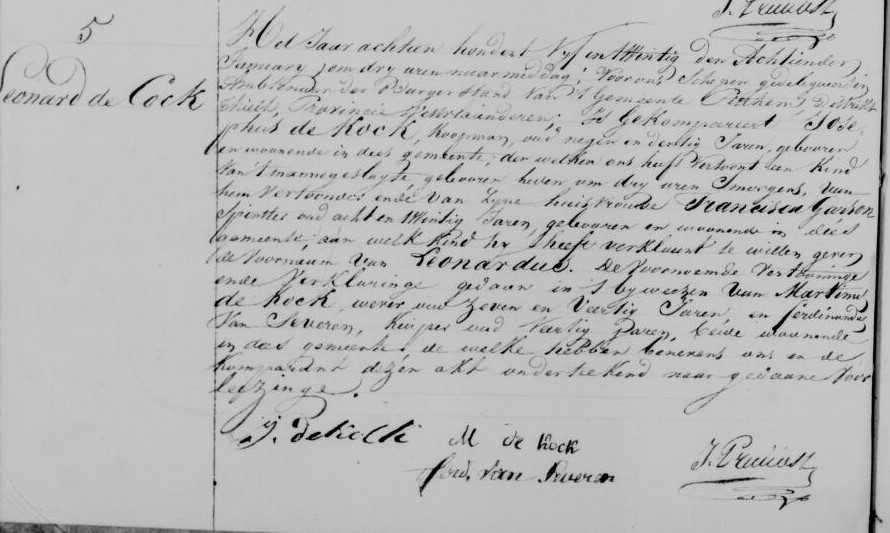 J. Pruvost
5
Leonard de Cock
Het Jaar achtien hondert Vyf en twintig den Achtienden
January, om dry uren naarmiddag, Voor ons Schepen gedelegueerden
Ambtenaer der Burgerstand Van 't Gemeente District
thielt, Provincie Westvlaenderen, is Gekompareert Jose-
phus de Kock, Koopman, oud negen en dertig Jaren, gebooren
en woonende in dees gemeente, der welken ons heeft Vertoont een Kind
Van 't mannegeslagte gebooren heden om dry uren Smorgens, van
hem Vertoonder ende Van Zyne huisvrouwe Francisca
Spinster oud acht en twintig Jaren, gebooren en woonende in dees
gemeente, aan welk Kind hy heeft verklaert te willen geven
de Voornaam van Leonardus. De Voornoemde Vertooninge
ende Verklaringe gedaan in 't bywezen van Martinus
de Kock, wever oud zeven en Veertig Jaren, en ferdinandus
Van Severen, Kuiper oud Veertig Jaren, beide woonende
in dees gemeente, de welke hebben benevens ons en de
Komparant dezen akt onderteekend naar gedaane Voor
lezzinge.
J. DeKock M de Kock
ferd. van Severen
J. Pruvost